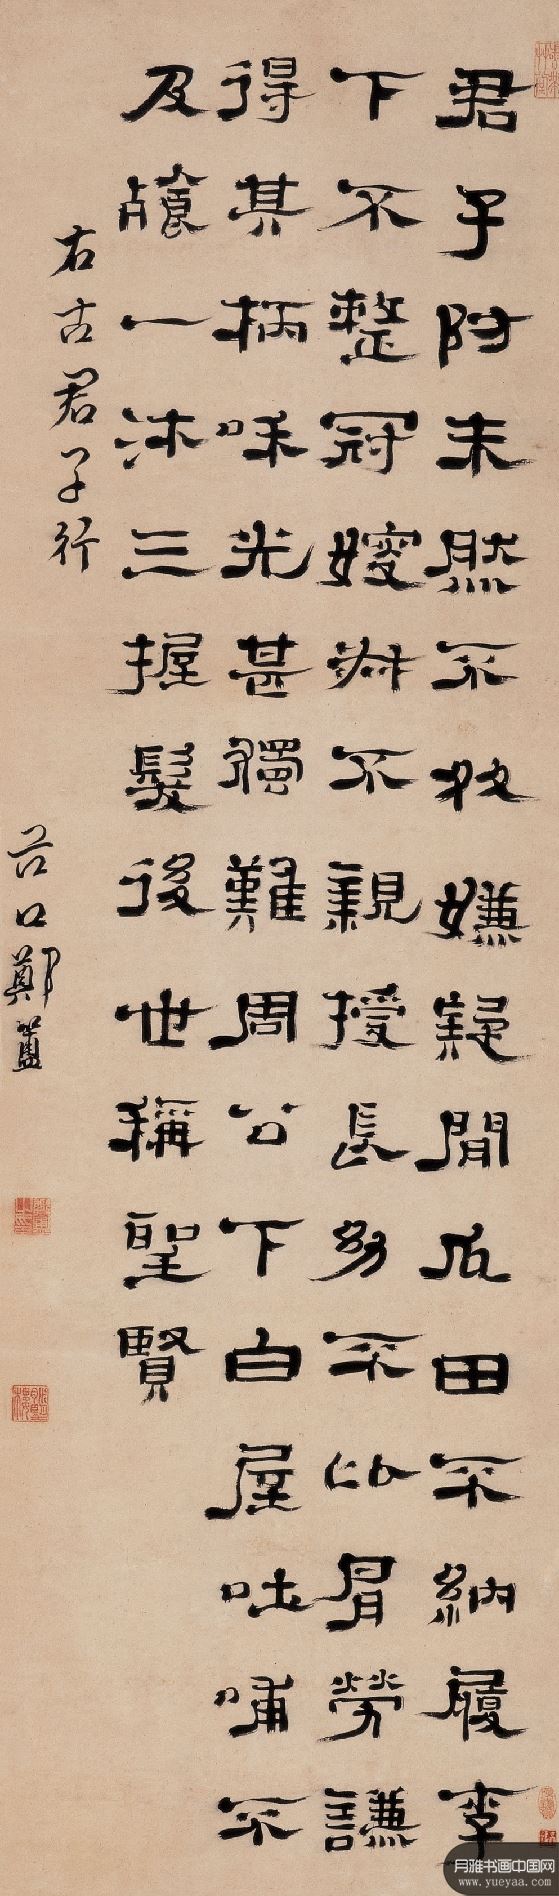 君子防未然不處嫌疑間瓜田不納履李
下不整冠嫂叔不親授長幼不比肩勞謙
得其柄咊光甚獨難周公下白屋吐哺不
及餐一沐三握髮後世稱聖賢
右古君子行
谷口鄭簠
月雅书画中国网
www.yueyaa.com